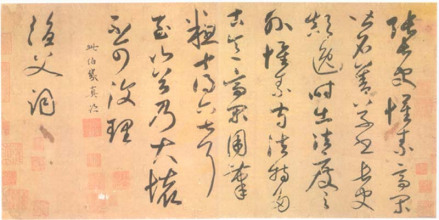 張長史懷素高閑
皆名善草書長史
顛逸時出法度之
外懷素守法特多
古意高閑用筆
粗十得六七耳
至山谷乃大壞
不可復理
漁父詞